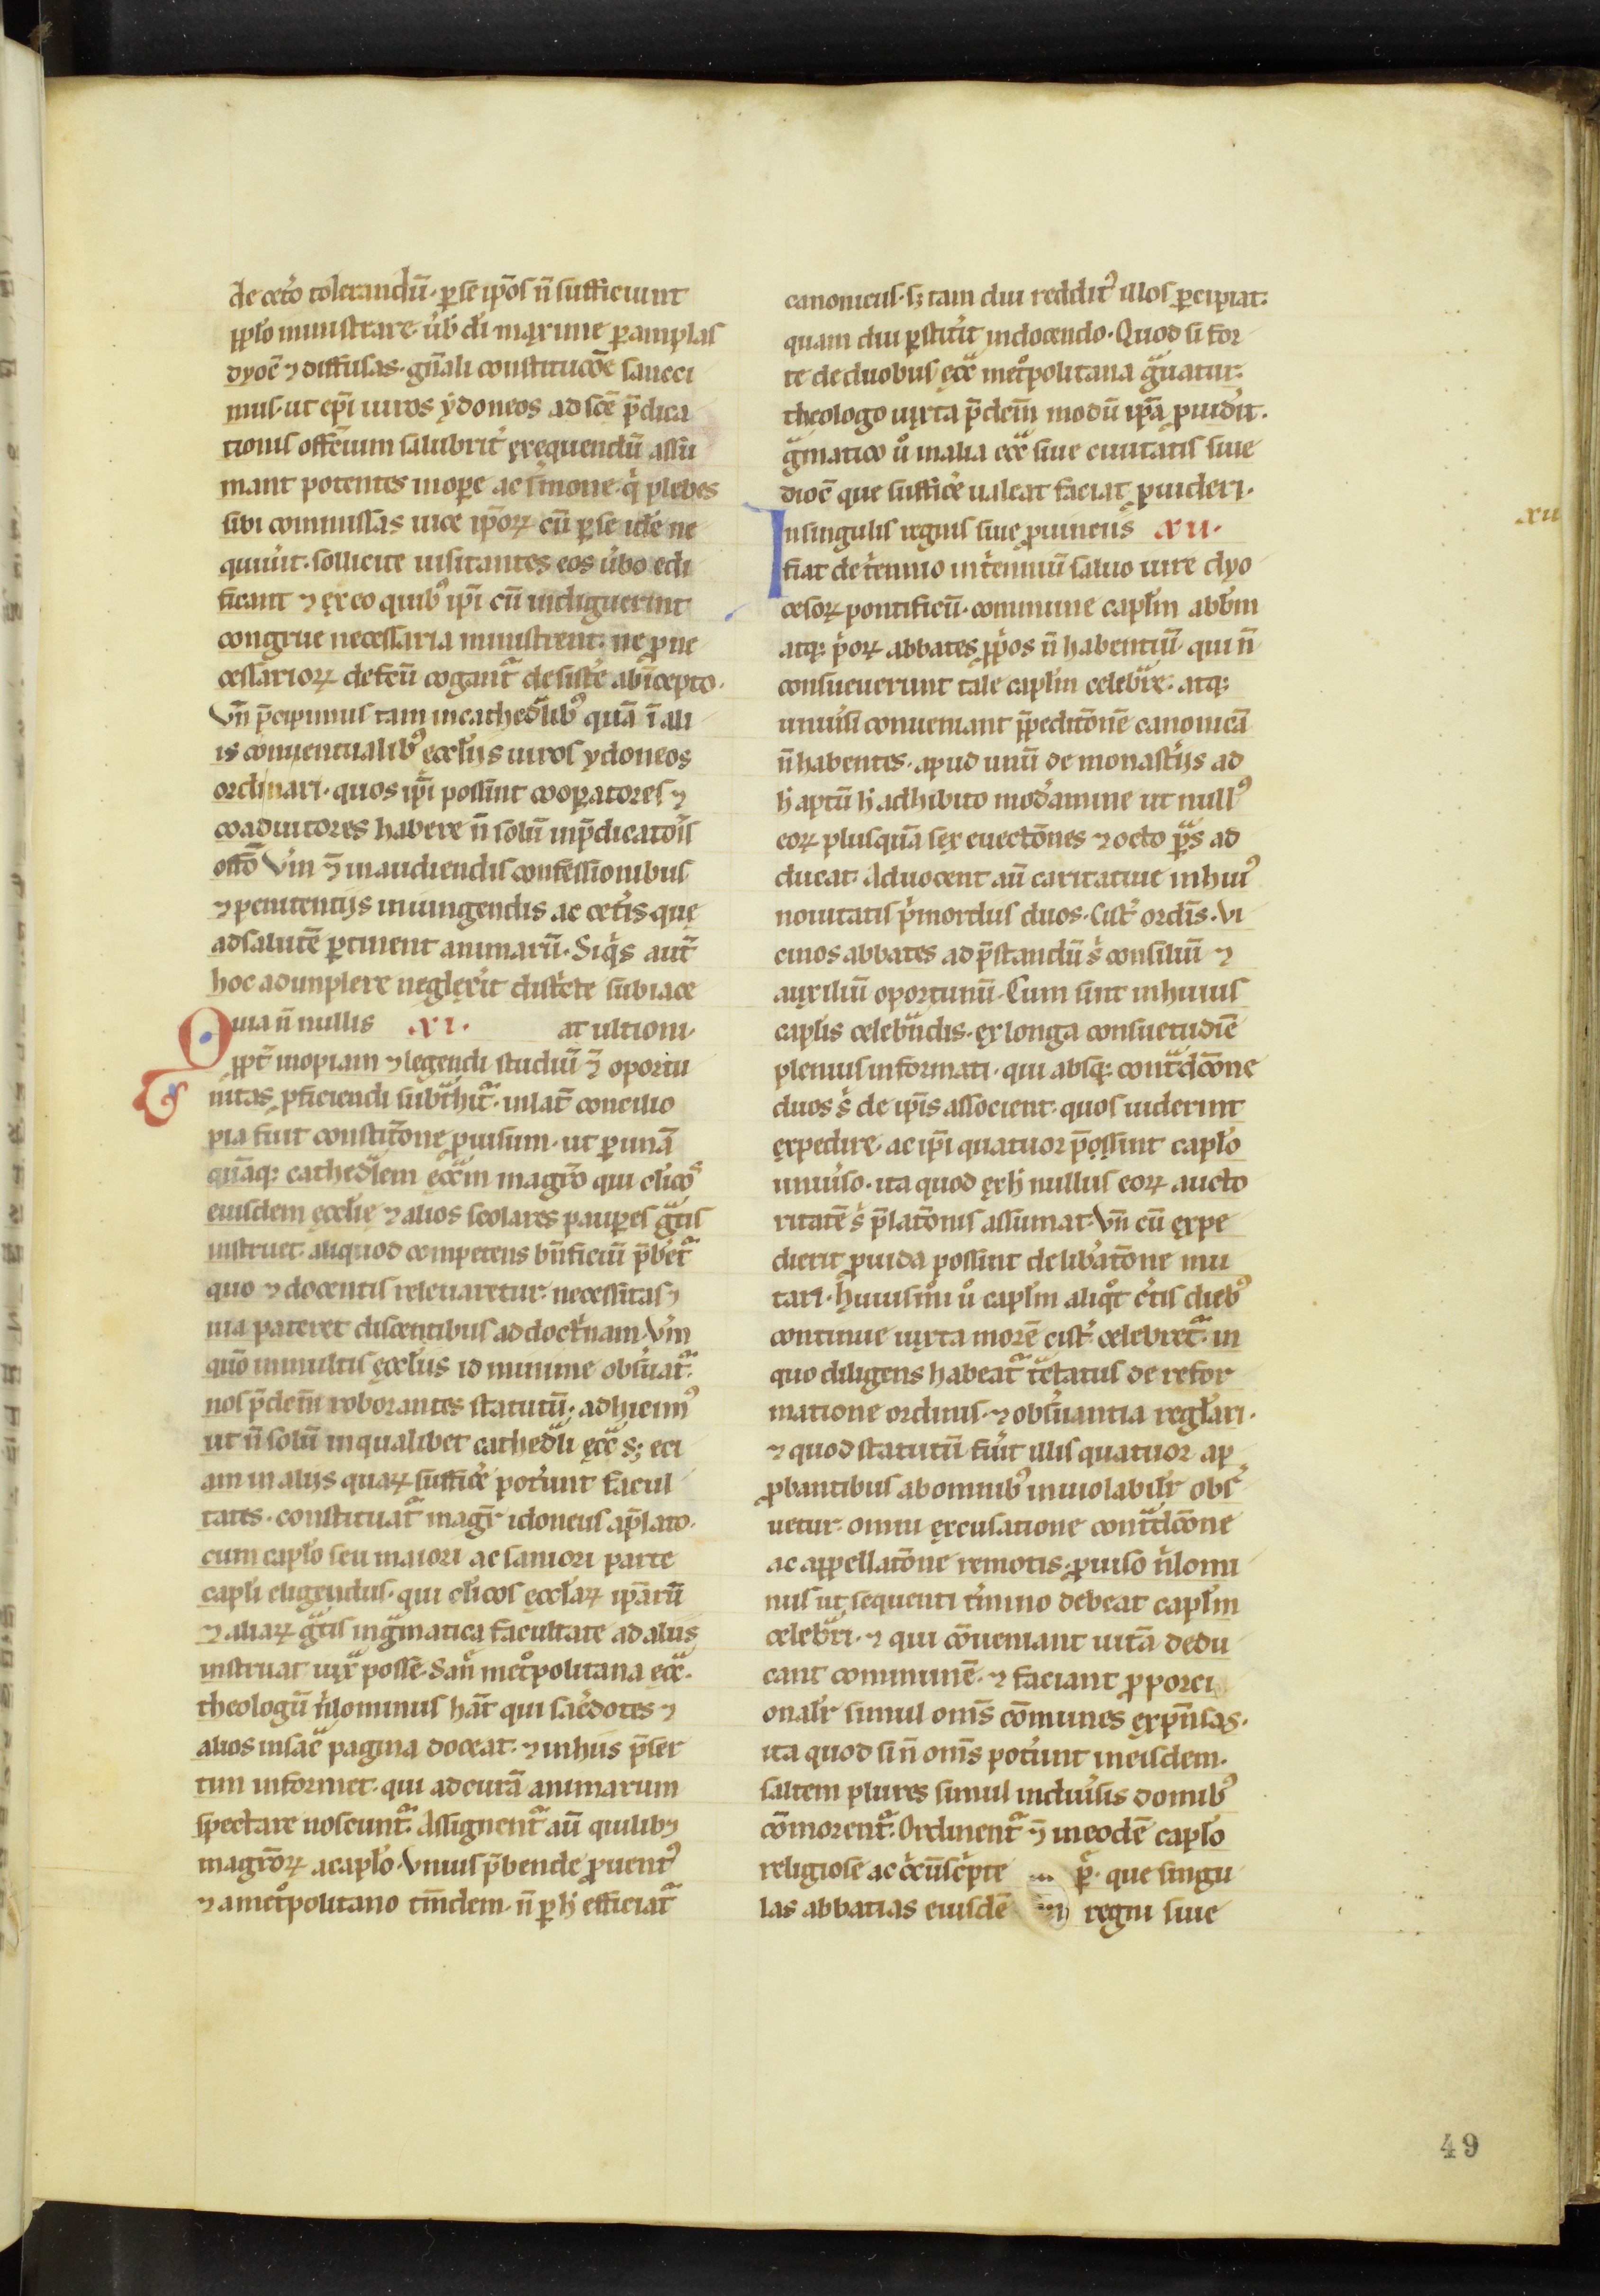 de cet̾o tolerandū· ꝑ se ip̄os n̄ sufficiunt
pp̄lo ministrare· u̾b̄ d̄i maxime ꝑ amplas
dyoc̄ ⁊ diffusas· gn̄ali constitucōe sanci
mus· ut ep̄i uiros ydoneos ad sc̄e p̄dica
tionis officium salubrit̾ exequendū assu
mant potentes in oꝑe ac s̾mone· q̾ plebes
sibi commissas uice ip̄oꝝ cū ꝑ se idē ne
quiu̾it· sollicite uisitantes eos u̾bo edi
ficant ⁊ exeo quibꝰ ip̄i cū indiguerint
congrue necessaria ministrent· ne ꝓ ne
cessarioꝝ defcū cogant̾ desist̾e ab īcepto·
Vn̄ p̄cipimus tam in cathed̾libꝰ quā ī ali
is conuentualibꝰ eccl̄ijs uiros ydoneos
ordinari· quos ip̄i possint cooꝑatores ⁊
coadiutores habere n̄ solū in p̄dicatōis
offō V̾m ⁊̄ in audiendis confessionibus
⁊ penitentijs iniungendis ac cet̾is que
ad salutē ꝑtinent animarū· Siq̾s aut̄
hoc adimplere neglex̾it district̾e subiace
Quia n̄ nullis ·xi· at ultioni·
ꝓpt̾ inopiam ⁊ legendi studiū ⁊̄ oportu
nitas ꝓficiendi subt̾hit̾· in lat̄ concilio
pia fuit constit̄one ꝓuisum· ut ꝑ unā
quāqꝫ cathed̾lem ecc̄am magr̄o qui cl̄icos
eiusdem eccl̄ie ⁊ alios scolares pauꝑes g̾tis
instruet· aliquod competens bn̄ficiū p̄bet̾
quo ⁊ docentis releuaretur necessitas ⁊
uia pateret discentibus ad doct̾nam· V̾m
qm̄o in multis eccl̄iis id minime obs̾uat̾·
nos p̄dem̄ roborantes statutū· adhicimꝰ
ut n̄ solū in qualibet cathed̾li ecc̄a sꝫ eci
am in alijs quaꝝ suffice̾ pot̾unt facul
tates· constituat̾ magr̄ idoneus a p̄lato·
cum capl̄o seu maiori ac saniori parte
capl̄i eligendus· qui cl̄icos eccl̄aꝝ ip̄arū
⁊ aliaꝝ g̾tis in g̾matica facultate ad alijs
instruat iux̾ posse· San̾ met̾politana ecc̄a·
theologū n̾lominus hāt qui sac̾dotes ⁊
alios in sac̄ pagina doceat· ⁊ in hiis p̄ser
tim informet· qui ad curā animarum
spectare noscunt̾· Assignent̾ aū quilibꝫ
magr̄oꝝ a capl̄o· Vnius p̄bende ꝓuentꝰ
⁊ a met̾politano tm̄dem· n̄ ꝑ h̾ efficiat̾
canonicus· sꝫ tam diu reddit̾ illos ꝑcipiat·
quam diu ꝑstit̾it in docendo· Quod si for
te de duobus ecc̄a met̾politana g̾uatur·
theologo iuxta p̄dem̄ modū ip̄a ꝓuid̾it·
g̾matico u̾ in alia ecc̄a siue ciuitatis siue
dioc̄ que suffice̾ ualeat faciat ꝓuideri·
In singulis regnis siue ꝓuincijs ·xii·
fiat de t̾ennio in t̾ennium saluo iure dyo
cesoꝝ pontificū· commune capl̄m abb̄m
atqꝫ p̾oꝝ abbates ꝓp̾os n̄ habentiū· qui n̄
consueuerunt tale capl̄m celebr̾e· atqꝫ
uniu̾si conueniant p̄peditōnē canonicā
n̄ habentes· apud unū de monast̾ijs ad
h̾ aptū h̾ adhibito mod̾amine ut nullꝰ
eoꝝ plusquā sex euectōnes ⁊ octo ꝑs̾ ad
ducat· Aduocent aū caritatiue in huiꝰ
nouitatis p̾mordiis duos· Cist̾ ordīs· vi
cinos abbates ad p̄standū s̾ consiliū ⁊
auxiliū oportunū· Cum sint in huius
capl̄is celebn̾dis· ex longa consuetudīe
plenius informati· qui absqꝫ cont̾dcōne
duos s̾ de ip̄is associent· quos uiderint
expedire· ac ip̄i quatuor p̄ossint capl̄o
uniu̾so· ita quod ex h̾ nullus eoꝝ aucto
ritatē s̾ p̄latōnis assumat· Vn̄ cū expe
dierit ꝓuida possint delib̾atōne mu
tari· Huiusmōi u̾ capl̄m aliq̾t c̾tis diebꝰ
continue iuxta morē cist̾ celebret̾· in
quo diligens habeat̾ t̾ctatus de refor
matione ordinis· ⁊ obs̾uantia regl̄ari·
⁊ quod statutū fu̾it illis quatuor ap
ꝓbantibus ab omnibꝰ inuiolabilr̄ obs̾
uetur· omni excusatione cont̾dcōne
ac appellatōne remotis· ꝓuiso n̾lomi
nus ut sequenti t̾mino debeat capl̄m
celebr̾i· ⁊ qui cōueniant uitā dedu
cant communē· ⁊ faciant ꝓporci
onalr̄ simul om̄s cōmunes expn̄sas·
ita quod si n̄ om̄s pot̾unt in eisdem·
saltem plures simul in diu̾sis domibꝰ
cōmorent̾· Ordinent̾ ⁊̄ in eodē capl̄o
religiose ac c̾cūsp̄cte ꝑ· que singu
las abbatias eiusdē regni siue
xii
49